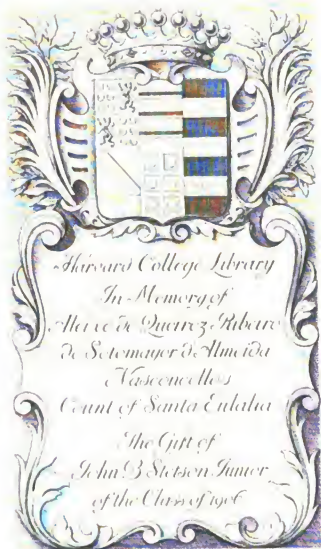 Harvard College Library
In Memory of
Aleixo de Queiroz Ribeiro
de Sotomayor d'Almeida
Vasconcellos
Count of Santa Eulalia
The Gift of
John B Stetson Junior
of the Class of 1906